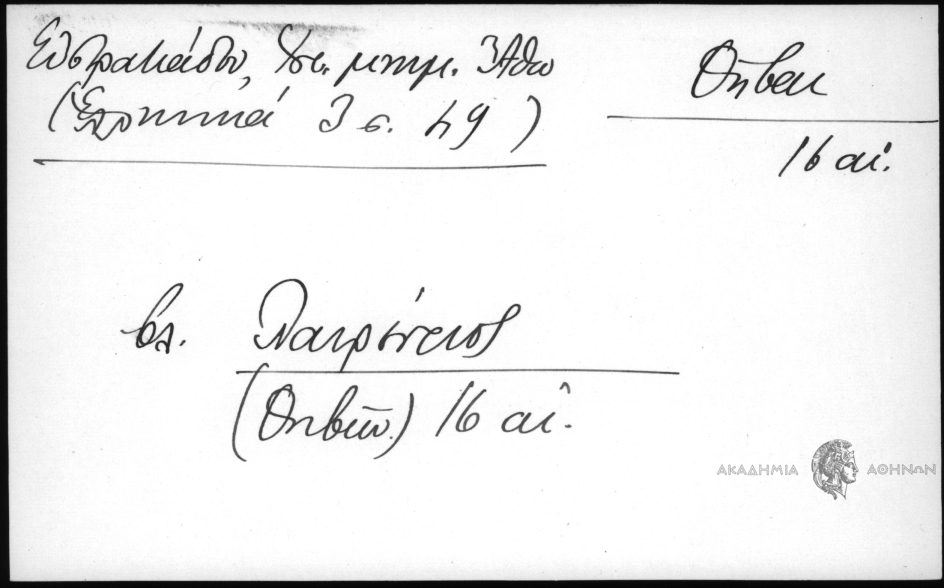 Εὐστρατιάδου, Ἱστ. μνημ. Ἄθω
(Ἑλληνικά 3 σ. 49)
Θῆβαι
16 αἰ.
βλ. Λαυρέντιος
(Θηβῶν.) 16 αἰ.
ΑΚΑΔΗΜΙΑ ΑΘΗΝΩΝ